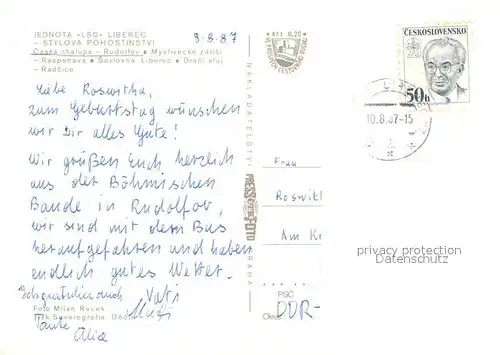 JEDNOTA «LSD» LIBEREC
– STYLOVÁ POHOSTINSTVÍ
Česká chalupa – Rudolfov • Myslivecké zátiší
– Raspenava • Savlovna Liberec •
– Radčice
9-8-87
Liebe Roswitha,
zum Geburtstag wünschen
wir Dir alles Gute!
Wir grüßen Euch herzlich
aus der Böhmischen
Baude in Rudolfov,
wir sind mit dem Bus
heraufgefahren und haben
endlich gutes Wetter.
Vati
Mutti
Ich gratuliere auch
Tante
Alice
Foto Milan Racek
Tisk Severografia Děčín
NAKLADATELSTVÍ
PRESSFOTO
PRAHA
Kčs 0,20
ČESKOSLOVENSKO
50h
10.8.87-15
Frau
Roswit
Am K
PSČ
DDR-
Okres
privacy protection
Datenschutz